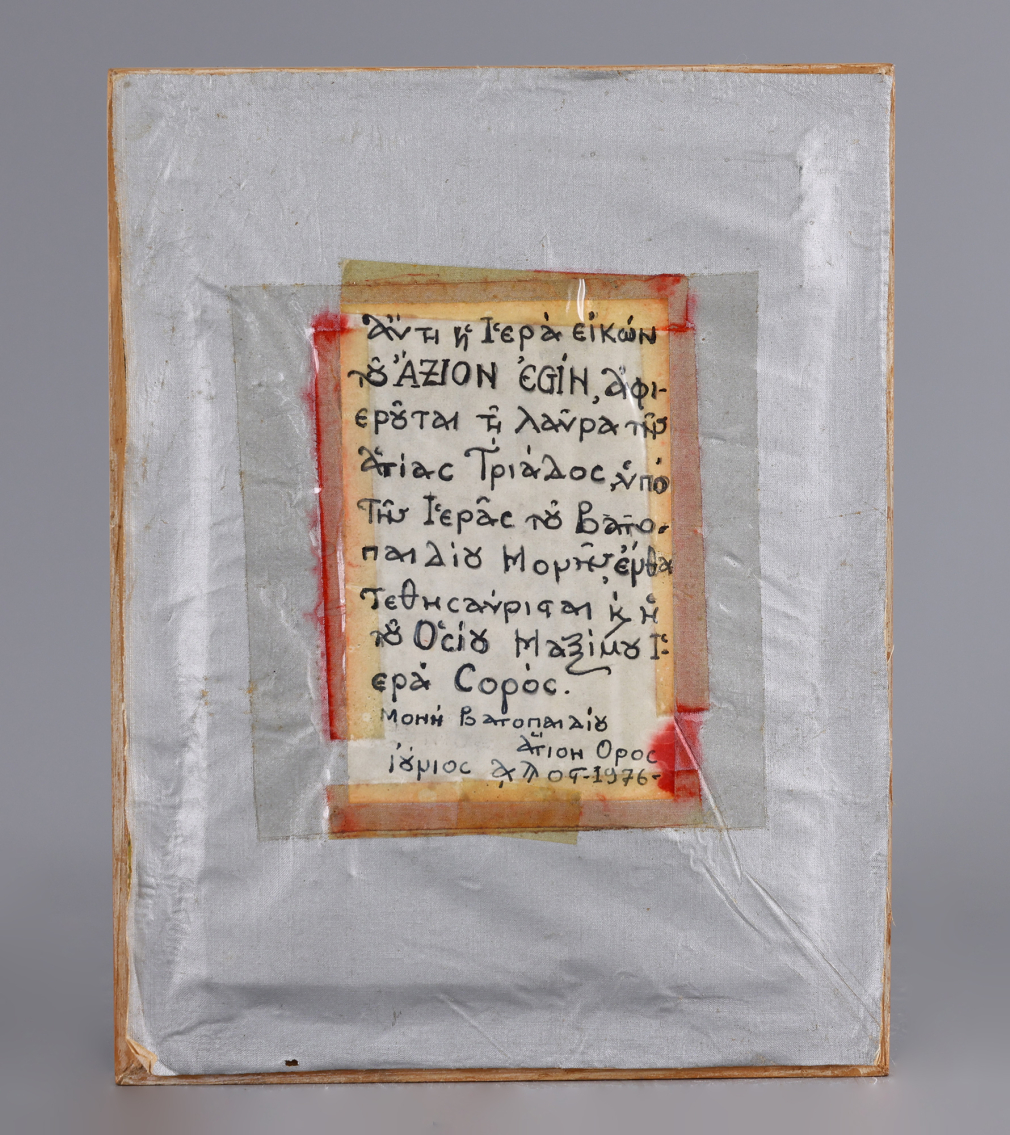 Αὕτη ἡ Ἱερὰ εἰκὼν
τοῦ ἌΞΙΟΝ ἘΣΤΊΝ, ἀφι-
εροῦται τῇ λαύρα τῆς
Ἁγίας Τριάδος, ὑπὸ
Τῆς Ἱερᾶς τοῦ Βατο-
παιδίου Μονῆς, ἔνθα
Τεθησαύρισται κ ἡ
τοῦ Ὁσίου Μαξίμου Ἱ-
ερὰ Σορὸς.
Μονὴ Βατοπαιδίου
Ἅγιον Ὄρος
ἰούνιος 1976-